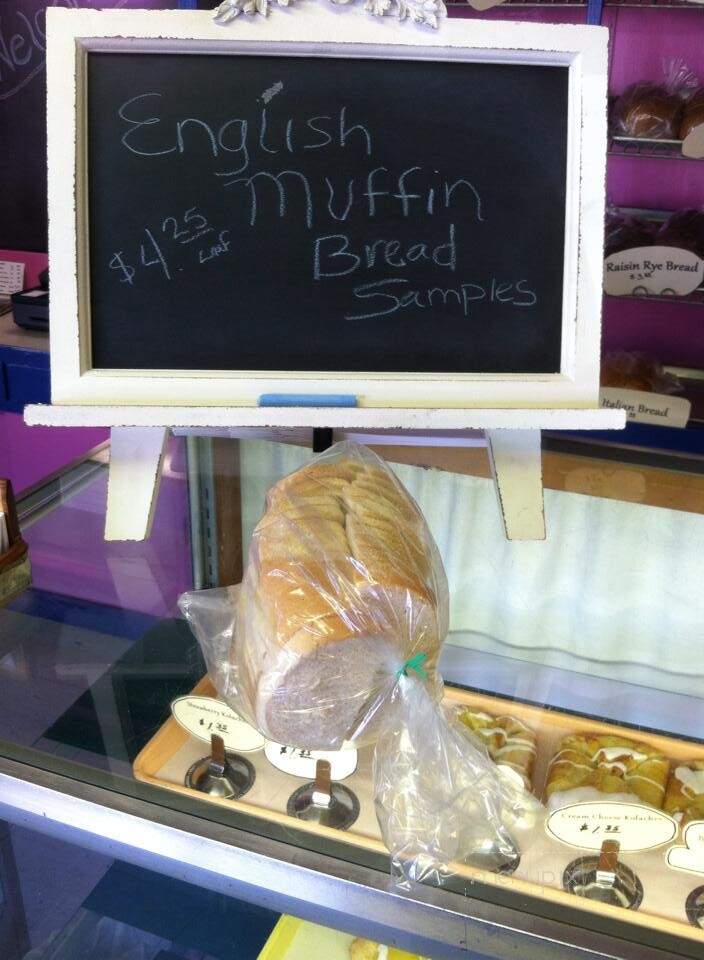 English
Muffin
$4.25 Loaf
Bread
Samples
Raisin Rye Bread
Italian Bread
Strawberry Kolache
$1.35
Cream Cheese Kolaches
$1.35